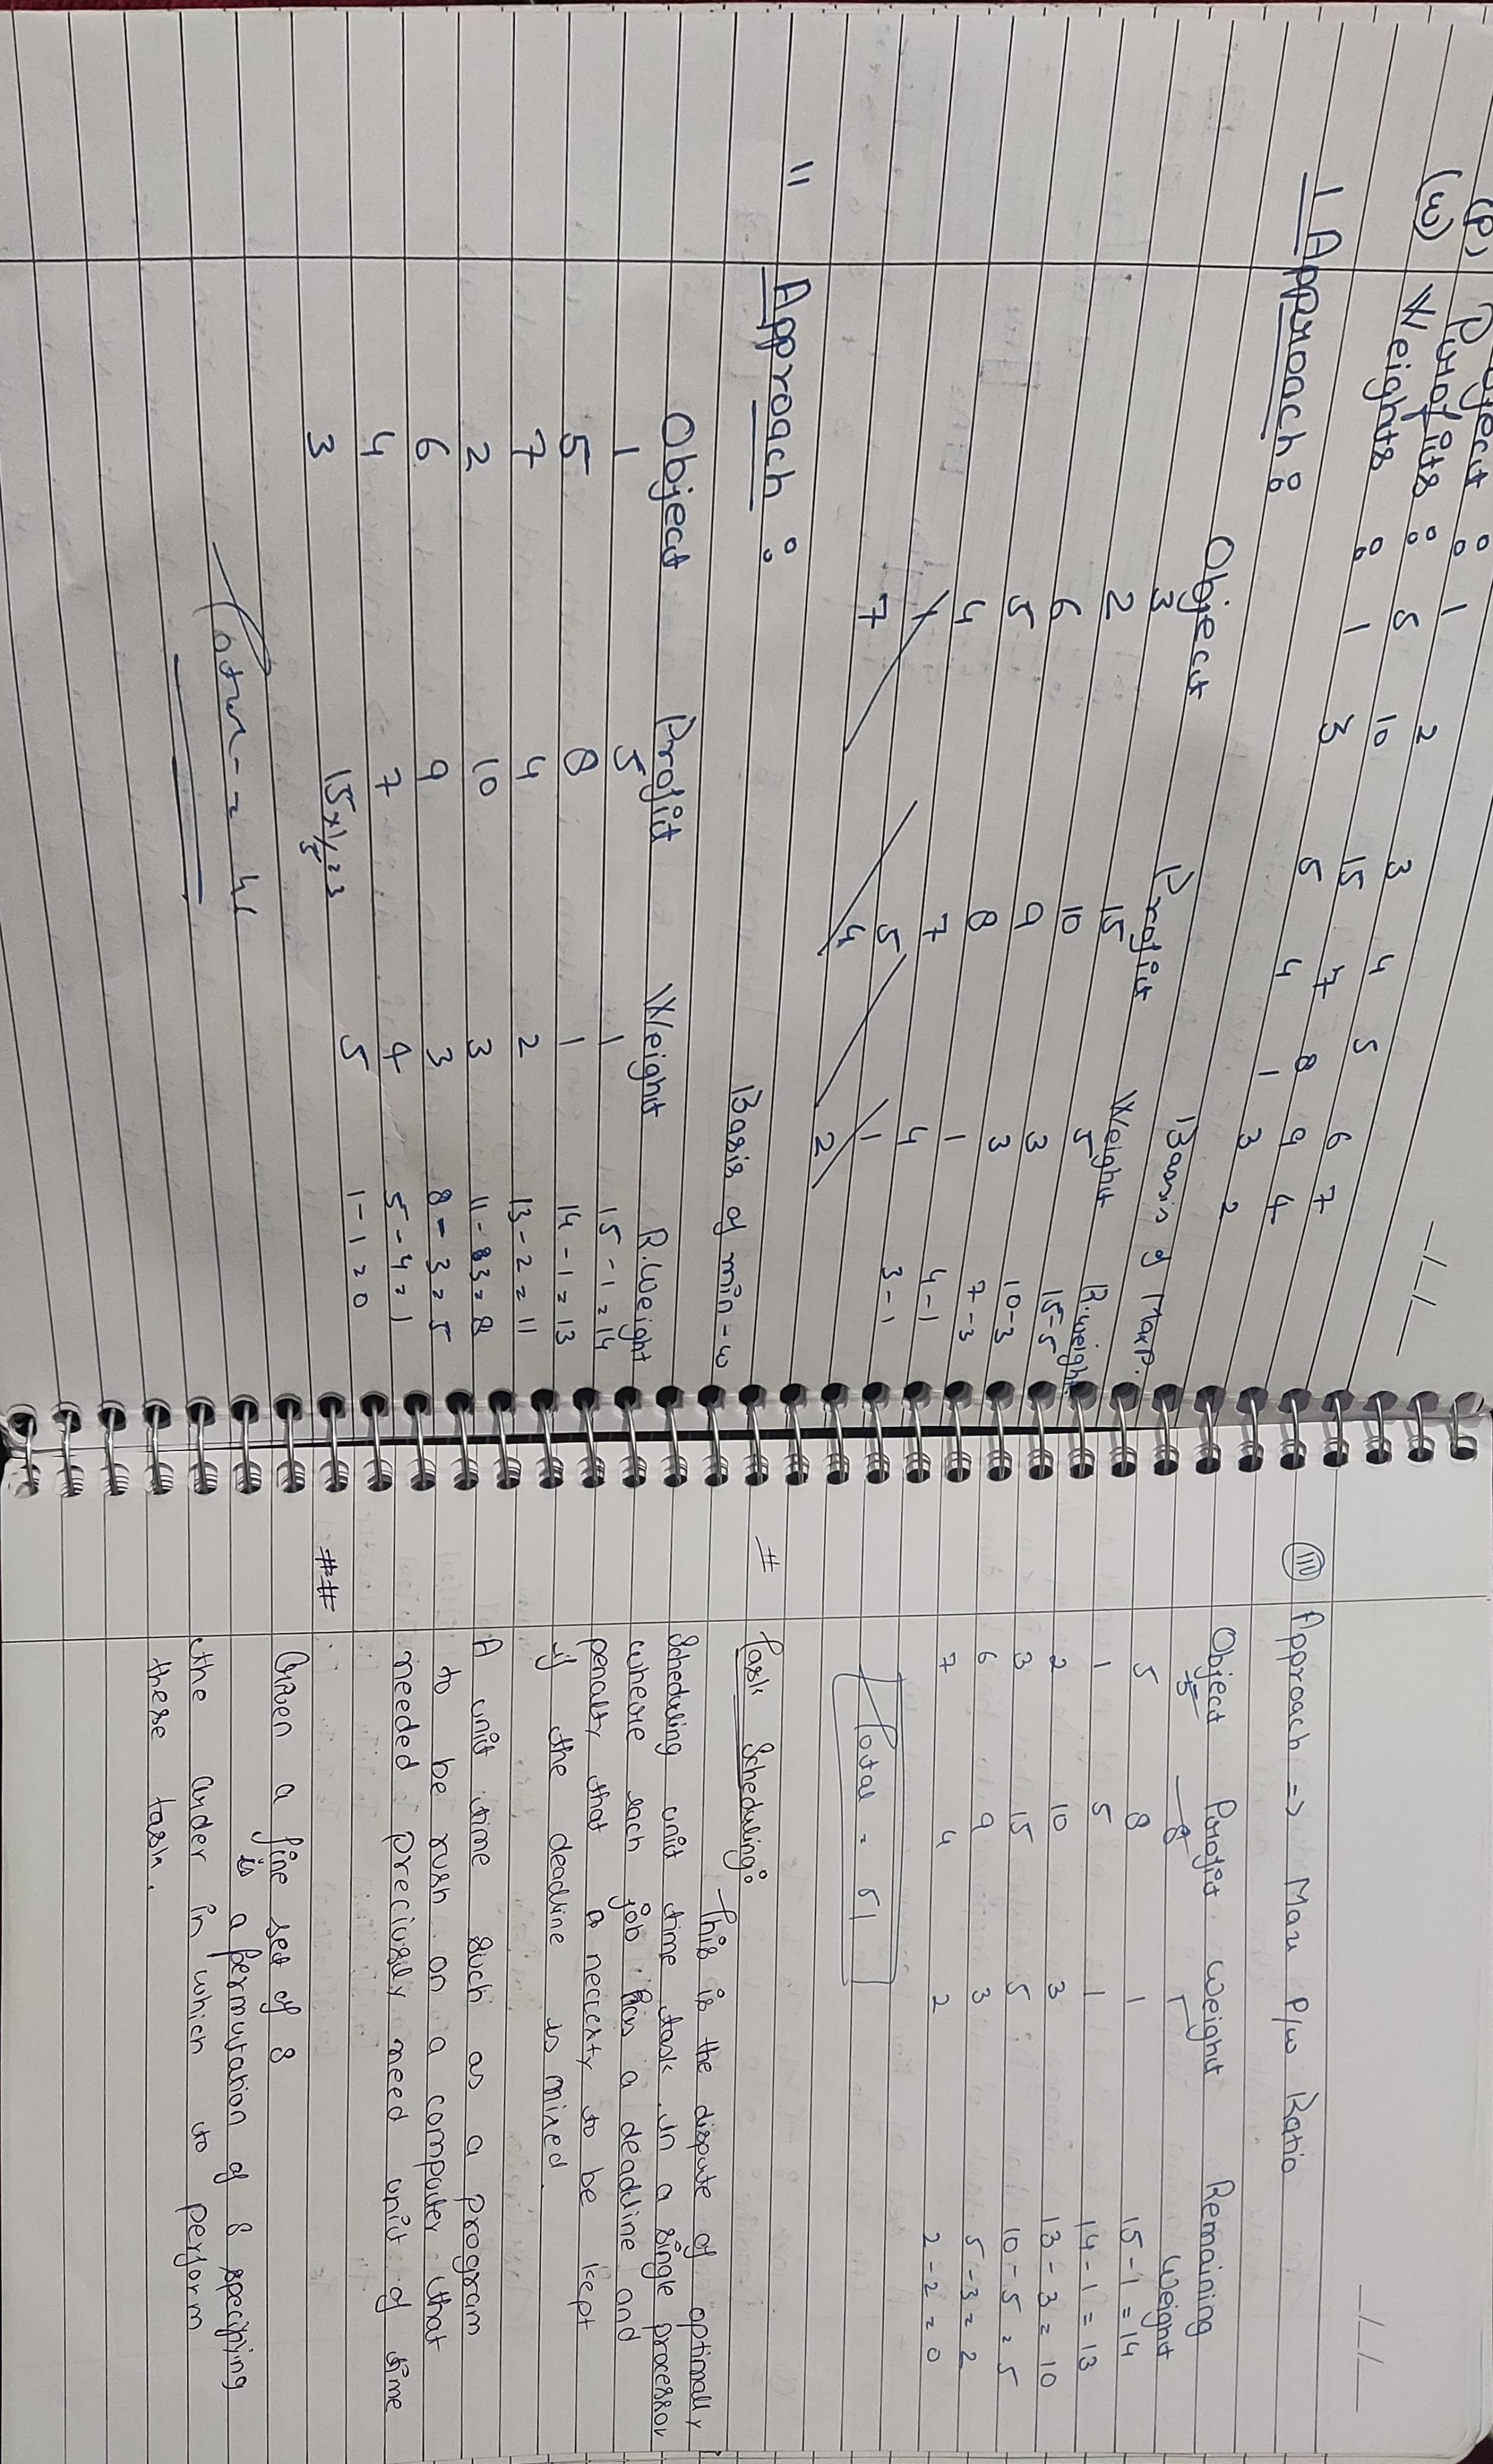 Object : 1 2 3 4 5 6 7
(P) Profits : 5 10 15 7 8 9 4
(w) Weights : 1 3 5 4 1 3 2
I Approach : Basis of Max P.
Object Profit Weight R.weight
3 15 5 15-5
2 10 3 10-3
6 9 3 7-3
5 8 1 4-1
4 7 4 3-1
1 5 1
7 4 2
II Approach : Basis of min-w
Object Profit Weight R.Weight
1 5 1 15-1=14
5 8 1 14-1=13
7 4 2 13-2=11
2 10 3 11-3=8
6 9 3 8-3=5
4 7 4 5-4=1
3 15x1/5=3 5 1-1=0
= 46
III Approach => Max P/w Ratio
Object Profit Weight Remaining Weight
5 8 1 15-1=14
1 5 1 14-1=13
2 10 3 13-3=10
3 15 5 10-5=5
6 9 3 5-3=2
7 4 2 2-2=0
Total = 51
# Task Scheduling:
This is the dispute of optimally
Scheduling unit time task in a single processor
where each job has a deadline and
penalty that a necexty to be kept
if the deadline is mixed.
A unit time such as a program
to be rush on a computer that
needed preciusly need unit of time
##
Given a fine set of S
is a permutation of S specifying
the order in which to perform
these task.